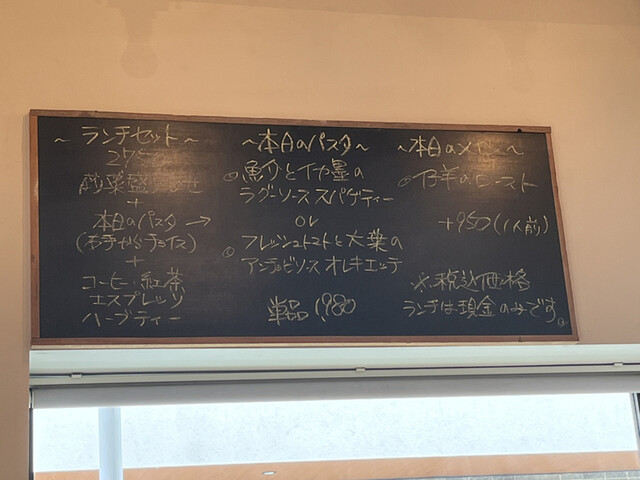 ～ランチセット～
前菜盛
+
本日のパスタ→
(右手からチョイス)
+
コーヒー・紅茶
エスプレッソ
ハーブティー
～本日のパスタ～
魚介とイカ墨の
ラグーソース スパゲティー
or
フレッシュトマトと大葉の
アンチョビソース オレキエッテ
単品 1,980
～本日のメイン～
仔羊のロースト
+950(1人前)
※税込価格
ランチは現金のみです